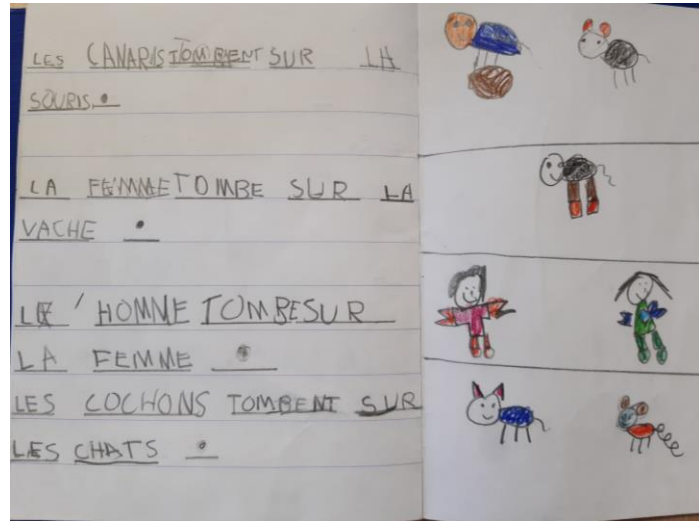 LES CANARIS TOMBENT SUR LA
SOURIS.
LA FEMME TOMBE SUR LA
VACHE .
LE 'HOMME TOMBE SUR
LA FEMME .
LES COCHONS TOMBENT SUR
LES CHATS .